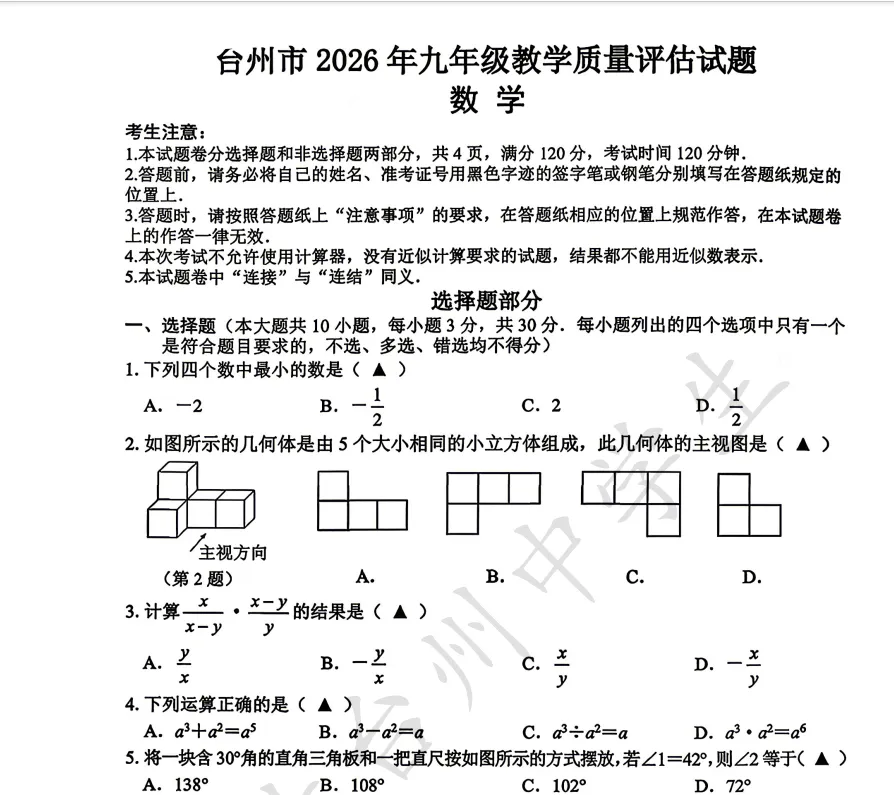 台州市 2026 年九年级教学质量评估试题
数 学
考生注意:
1.本试题卷分选择题和非选择题两部分，共 4 页，满分 120 分，考试时间 120 分钟.
2.答题前，请务必将自己的姓名、准考证号用黑色字迹的签字笔或钢笔分别填写在答题纸规定的
位置上.
3.答题时，请按照答题纸上“注意事项”的要求，在答题纸相应的位置上规范作答，在本试题卷
上的作答一律无效.
4.本次考试不允许使用计算器，没有近似计算要求的试题，结果都不能用近似数表示.
5.本试题卷中“连接”与“连结”同义.
选择题部分
一、选择题（本大题共 10 小题，每小题 3 分，共 30 分．每小题列出的四个选项中只有一个
是符合题目要求的，不选、多选、错选均不得分）
1. 下列四个数中最小的数是（ ▲ ）
A. －2 B. －1/2 C. 2 D. 1/2
2. 如图所示的几何体是由 5 个大小相同的小立方体组成，此几何体的主视图是（ ▲ ）
主视方向
（第 2 题） A. B. C. D.
3. 计算 x/(x－y) · (x－y)/y 的结果是（ ▲ ）
A. y/x B. －y/x C. x/y D. －x/y
4. 下列运算正确的是（ ▲ ）
A. a³＋a²＝a⁵ B. a³－a²＝a C. a³÷a²＝a D. a³・a²＝a⁶
5. 将一块含 30°角的直角三角板和一把直尺按如图所示的方式摆放，若∠1＝42°，则∠2 等于（ ▲ ）
A. 138° B. 108° C. 102° D. 72°
台州中学生